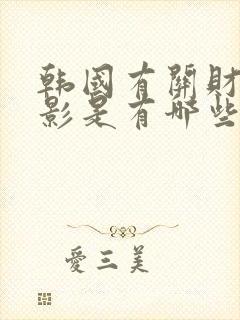 韩國有關財
影是有哪些
愛三美